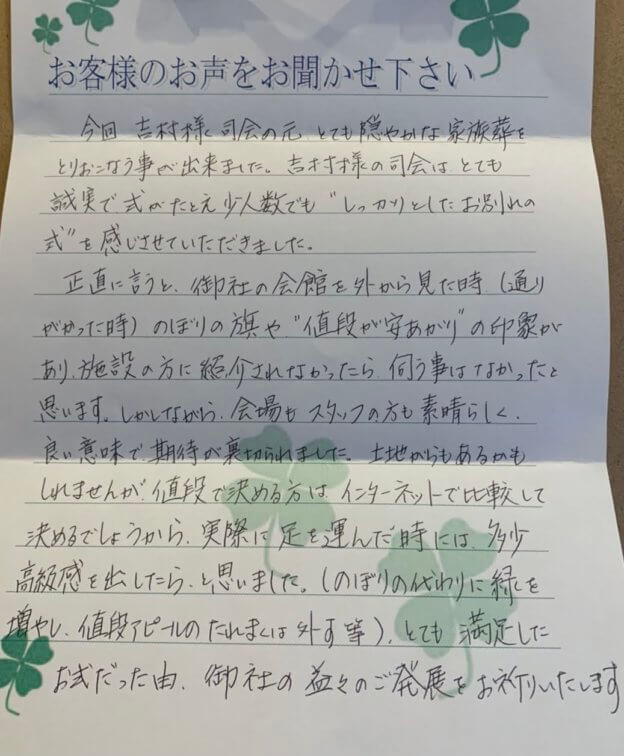 お客様のお声をお聞かせ下さい
今回 吉村様 司会の元、とても穏やかな家族葬を
とりおこなう事が出来ました。吉村様の司会は、とても
誠実で、式がたとえ少人数でも“しっかりとしたお別れの
式”を感じさせていただきました。
正直に言うと、御社の会館を外から見た時（通り
がかった時）のぼりの旗や“値段が安あがり”の印象が
あり、施設の方に紹介されなかったら、伺う事はなかったと
思います。しかしながら、会場も スタッフの方も素晴らしく、
良い意味で期待が裏切られました。土地がらもあるかも
しれませんが、値段で決める方は、インターネットで比較して
決めるでしょうから、実際に足を運んだ時には、多少
高級感を出したら、と思いました。（のぼりの代わりに緑を
増やし、値段アピールの たれまくは外す等）、とても満足した
お式だった由、御社の益々のご発展をお祈りいたします